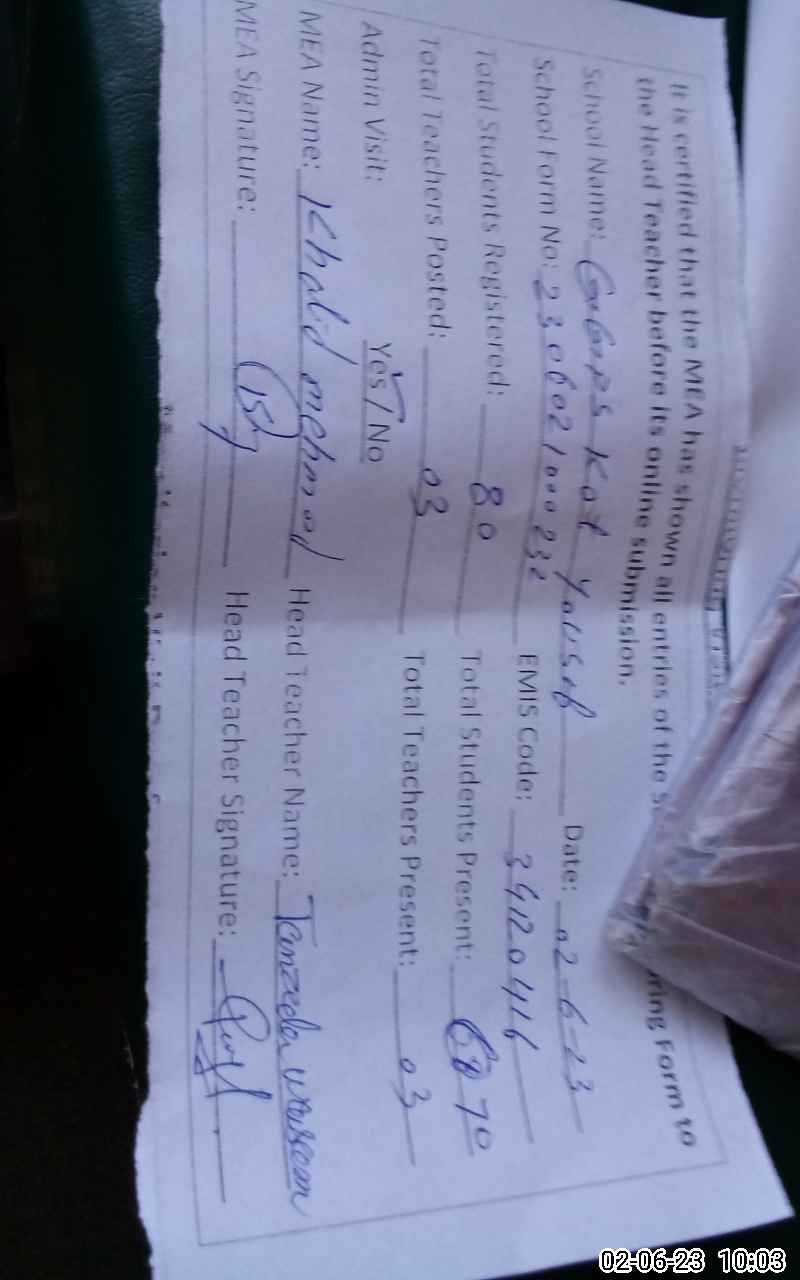 It is certified that the MEA has shown all entries of the ring Form to
the Head Teacher before its online submission.
School Name: Kot Yousaf Date: 02-6-23
School Form No: EMIS Code: 34120416
Total Students Registered: 80 Total Students Present: 70
Total Teachers Posted: 03 Total Teachers Present: 03
Admin Visit: Yes / No
MEA Name: Khalid mehmood Head Teacher Name:
MEA Signature: Head Teacher Signature:
02-06-23 10:03